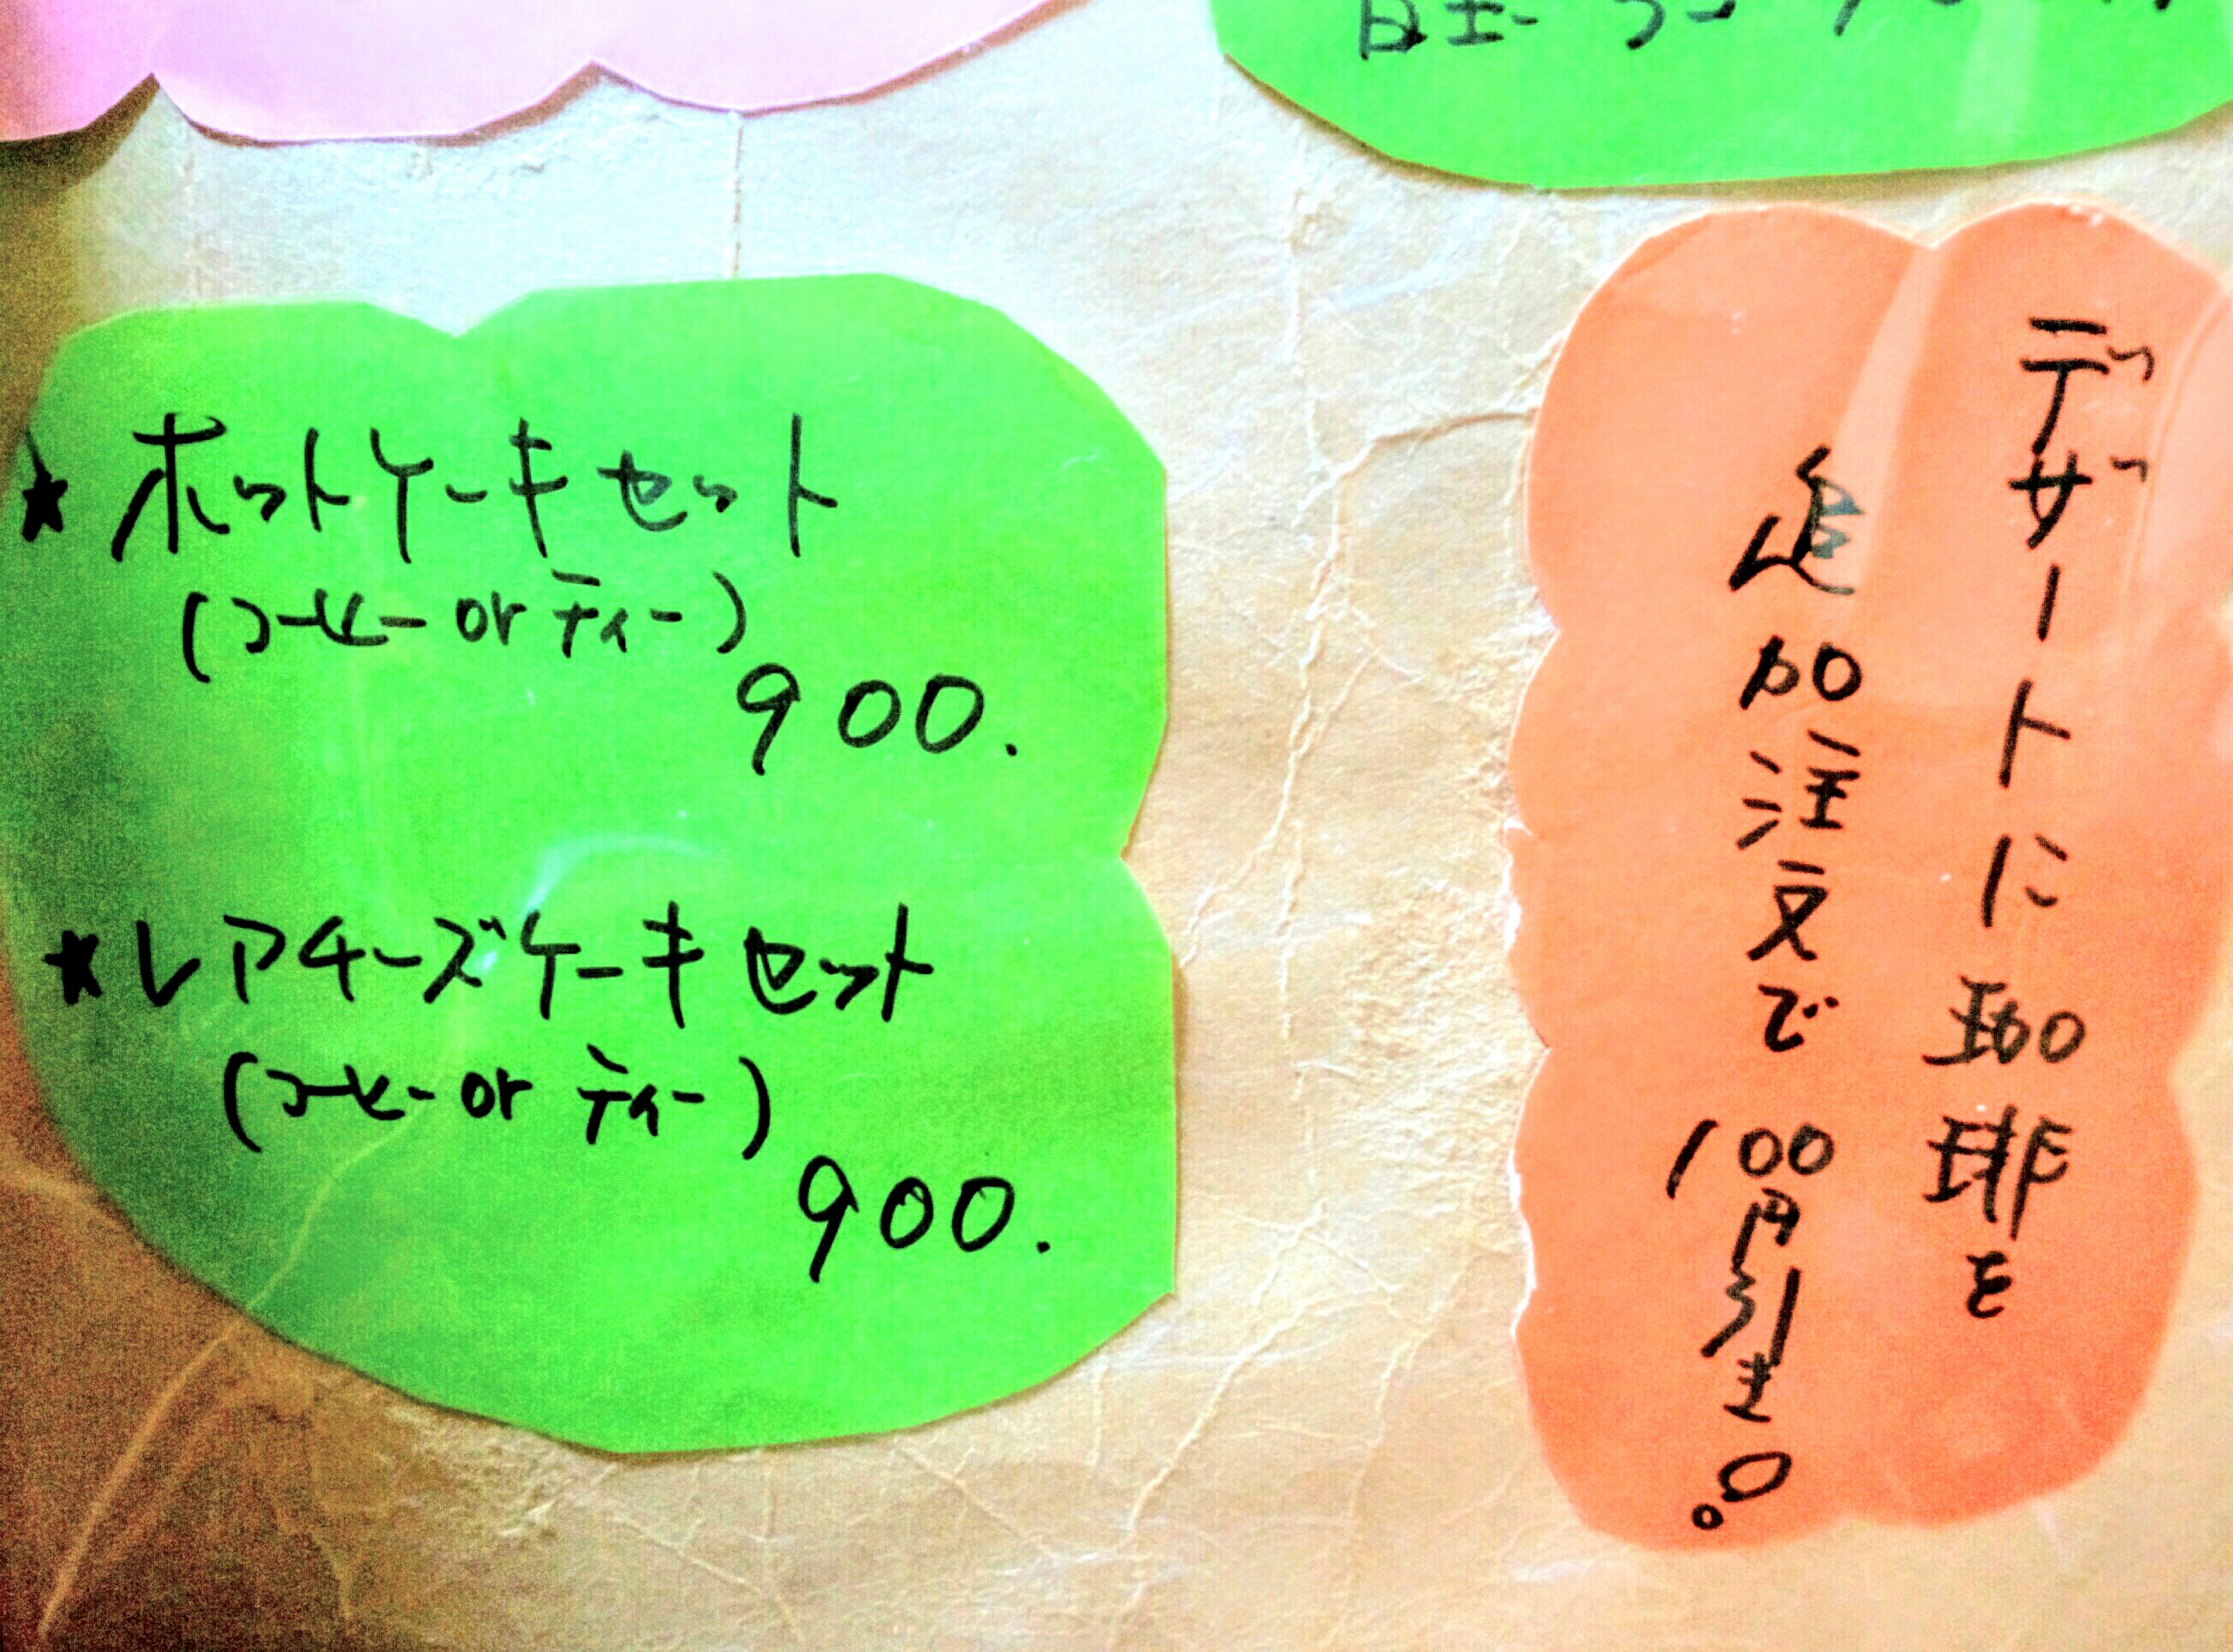 ★ホットケーキセット
(コーヒー or ティー)
900.
★レアチーズケーキセット
(コーヒー or ティー)
900.
デザートに珈琲を
追加注文で100円引き!。